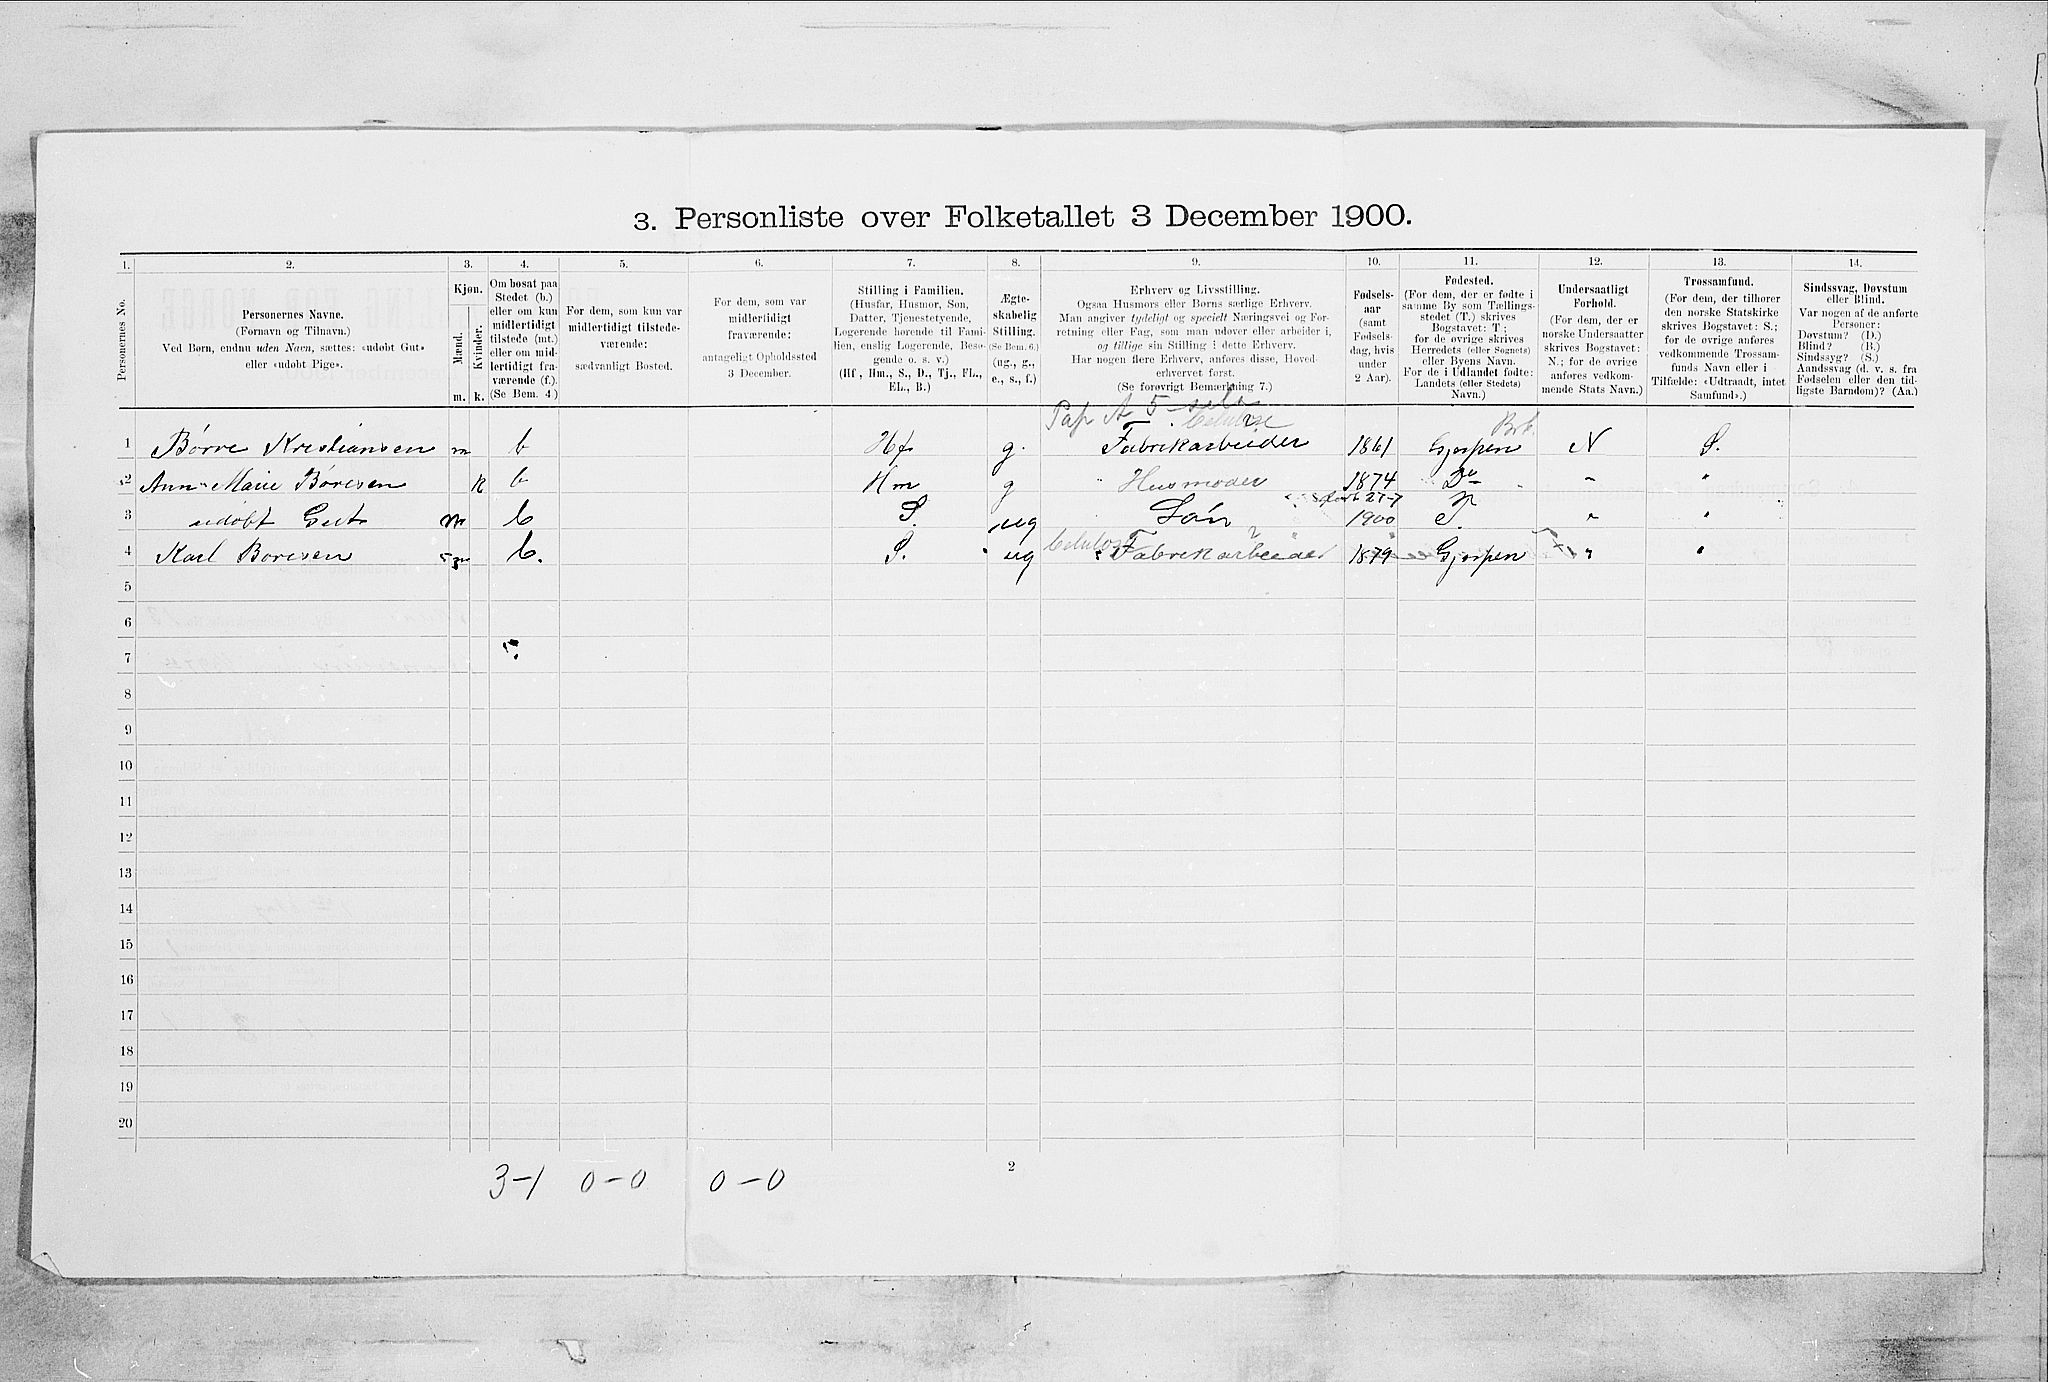 3. Personliste over Folketallet 3 December 1900.
1. 2. 3. 4. 5. 6. 7. 8. 9. 10. 11. 12. 13. 14.
Personernes No.
Personernes Navne.
(Fornavn og Tilnavn.)
Ved Børn, endnu uden Navn, sættes: «udøbt Gut»
eller «udøbt Pige».
Kjøn.
Mænd.
Kvinder.
m. k.
Om bosat paa
Stedet (b.)
eller om kun
midlertidigt
tilstede (mt.)
eller om mid-
lertidigt fra-
værende (f.).
(Se Bem. 4)
For dem, som kun var
midlertidigt tilstede-
værende:
sædvanligt Bosted.
For dem, som var
midlertidigt
fraværende:
antageligt Opholdssted
3 December.
Stilling i Familien.
(Husfar, Husmor, Søn,
Datter, Tjenestetyende,
Logerende hørende til Fami-
lien, enslig Logerende, Besø-
gende o. s. v.)
(Hf., Hm., S., D., Tj., FL.,
EL., B.)
Ægte-
skabelig
Stilling.
(Se Bem. 6.)
(ug., g.,
e., s., f.)
Erhverv og Livsstilling.
Ogsaa Husmors eller Børns særlige Erhverv.
Man angiver tydeligt og specielt Næringsvei og For-
retning eller Fag, som man udøver eller arbeider i,
og tillige sin Stilling i dette Erhverv.
Har nogen flere Erhverv, anføres disse, Hoved-
erhvervet først.
(Se forøvrigt Bemærkning 7.)
Fødsels-
aar
(samt
Fødsels-
dag, hvis
under
2 Aar).
Fødested.
(For dem, der er fødte i
samme By som Tællings-
stedet (T.) skrives
Bogstavet: T;
for de øvrige skrives
Herredets (eller Sognets)
eller Byens Navn.
For de i Udlandet fødte:
Landets (eller Stedets)
Navn.)
Undersaatligt
Forhold.
(For dem, der er
norske Undersaatter
skrives Bogstavet:
N.; for de øvrige
anføres vedkom-
mende Stats Navn.)
Trossamfund.
(For dem, der tilhører
den norske Statskirke
skrives Bogstavet: S.;
for de øvrige anføres
vedkommende Trossam-
funds Navn eller i
Tilfælde: «Udtraadt, intet
Samfund».)
Sindssvag, Døvstum
eller Blind.
Var nogen af de anførte
Personer:
Døvstum? (D.)
Blind? (B.)
Sindssyg? (S.)
Aandssvag (d. v. s. fra
Fødselen eller den tid-
ligste Barndom)? (Aa.)
Pap A 5
Celulose Brb.
1 Børre Kristiansen m b Hf g. Fabrikarbeider 1861 Gjerpen N S.
2 Ann Marie Børresen k b Hm g Husmoder 1874 Do " "
27-7
3 udøbt Gut m b S. ug Søn 1900 T. " "
4 Karl Børesen m b. S. ug Celulose Fabrikarbeider 1879 Gjerpen " "
5
6
7
8
9
10
11
12
13
14
15
16
17
18
19
20
3-1 0-0 0-0
2